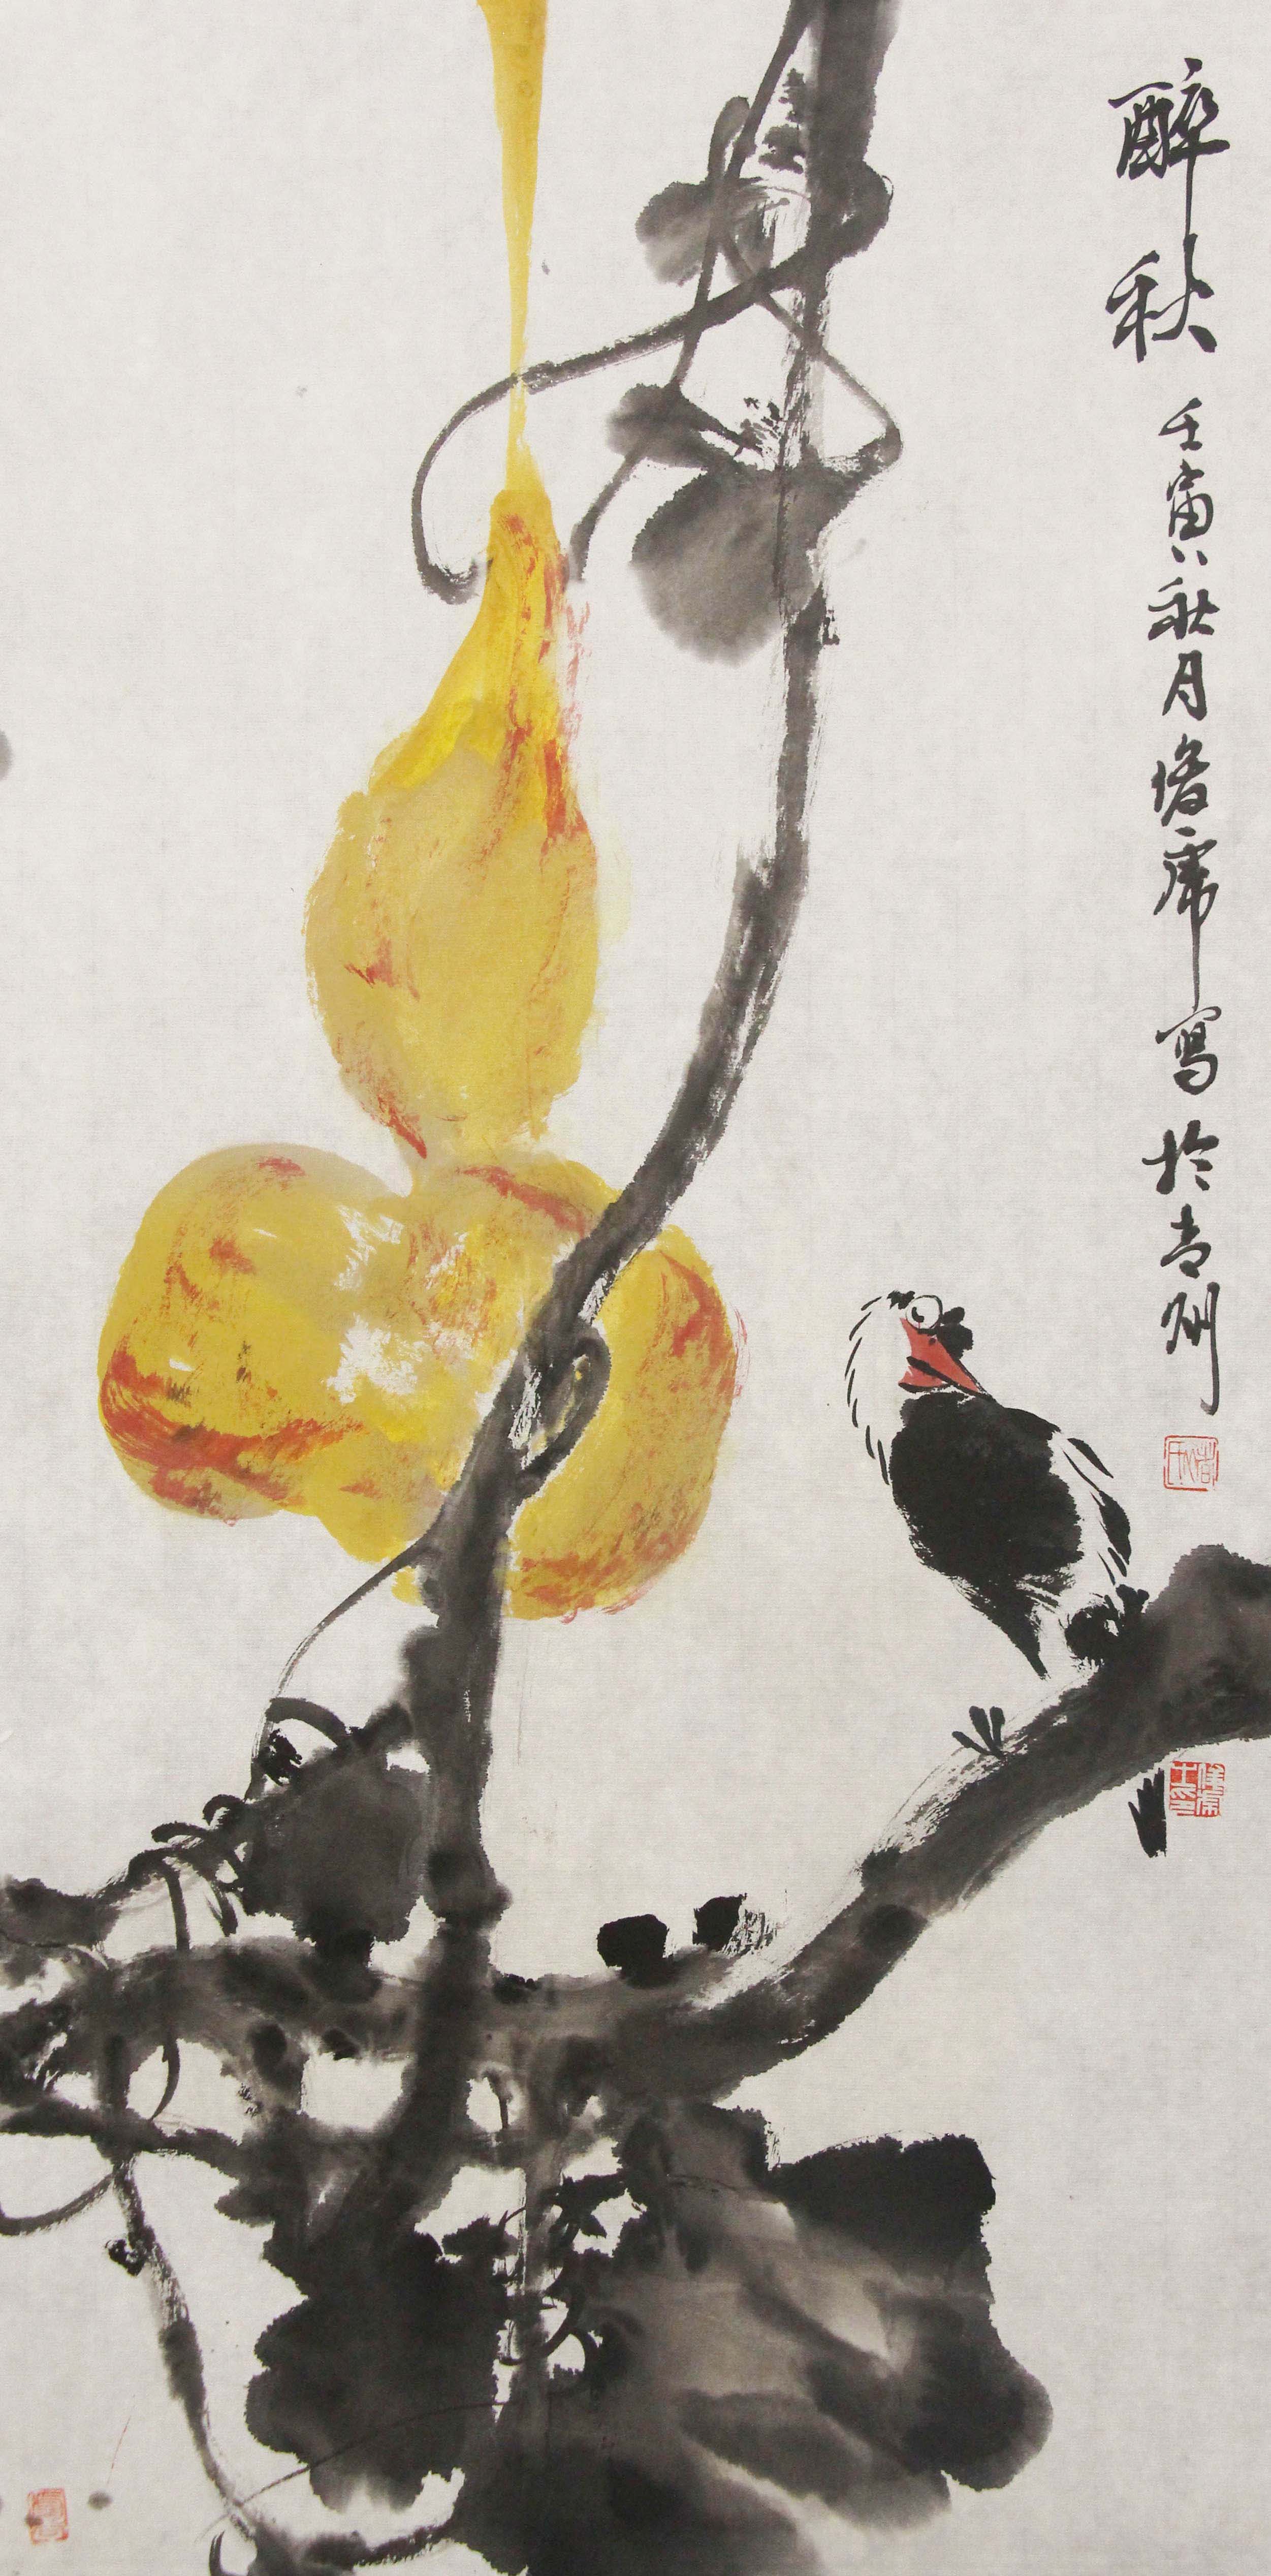 醉秋
壬寅秋月 席寫於青州